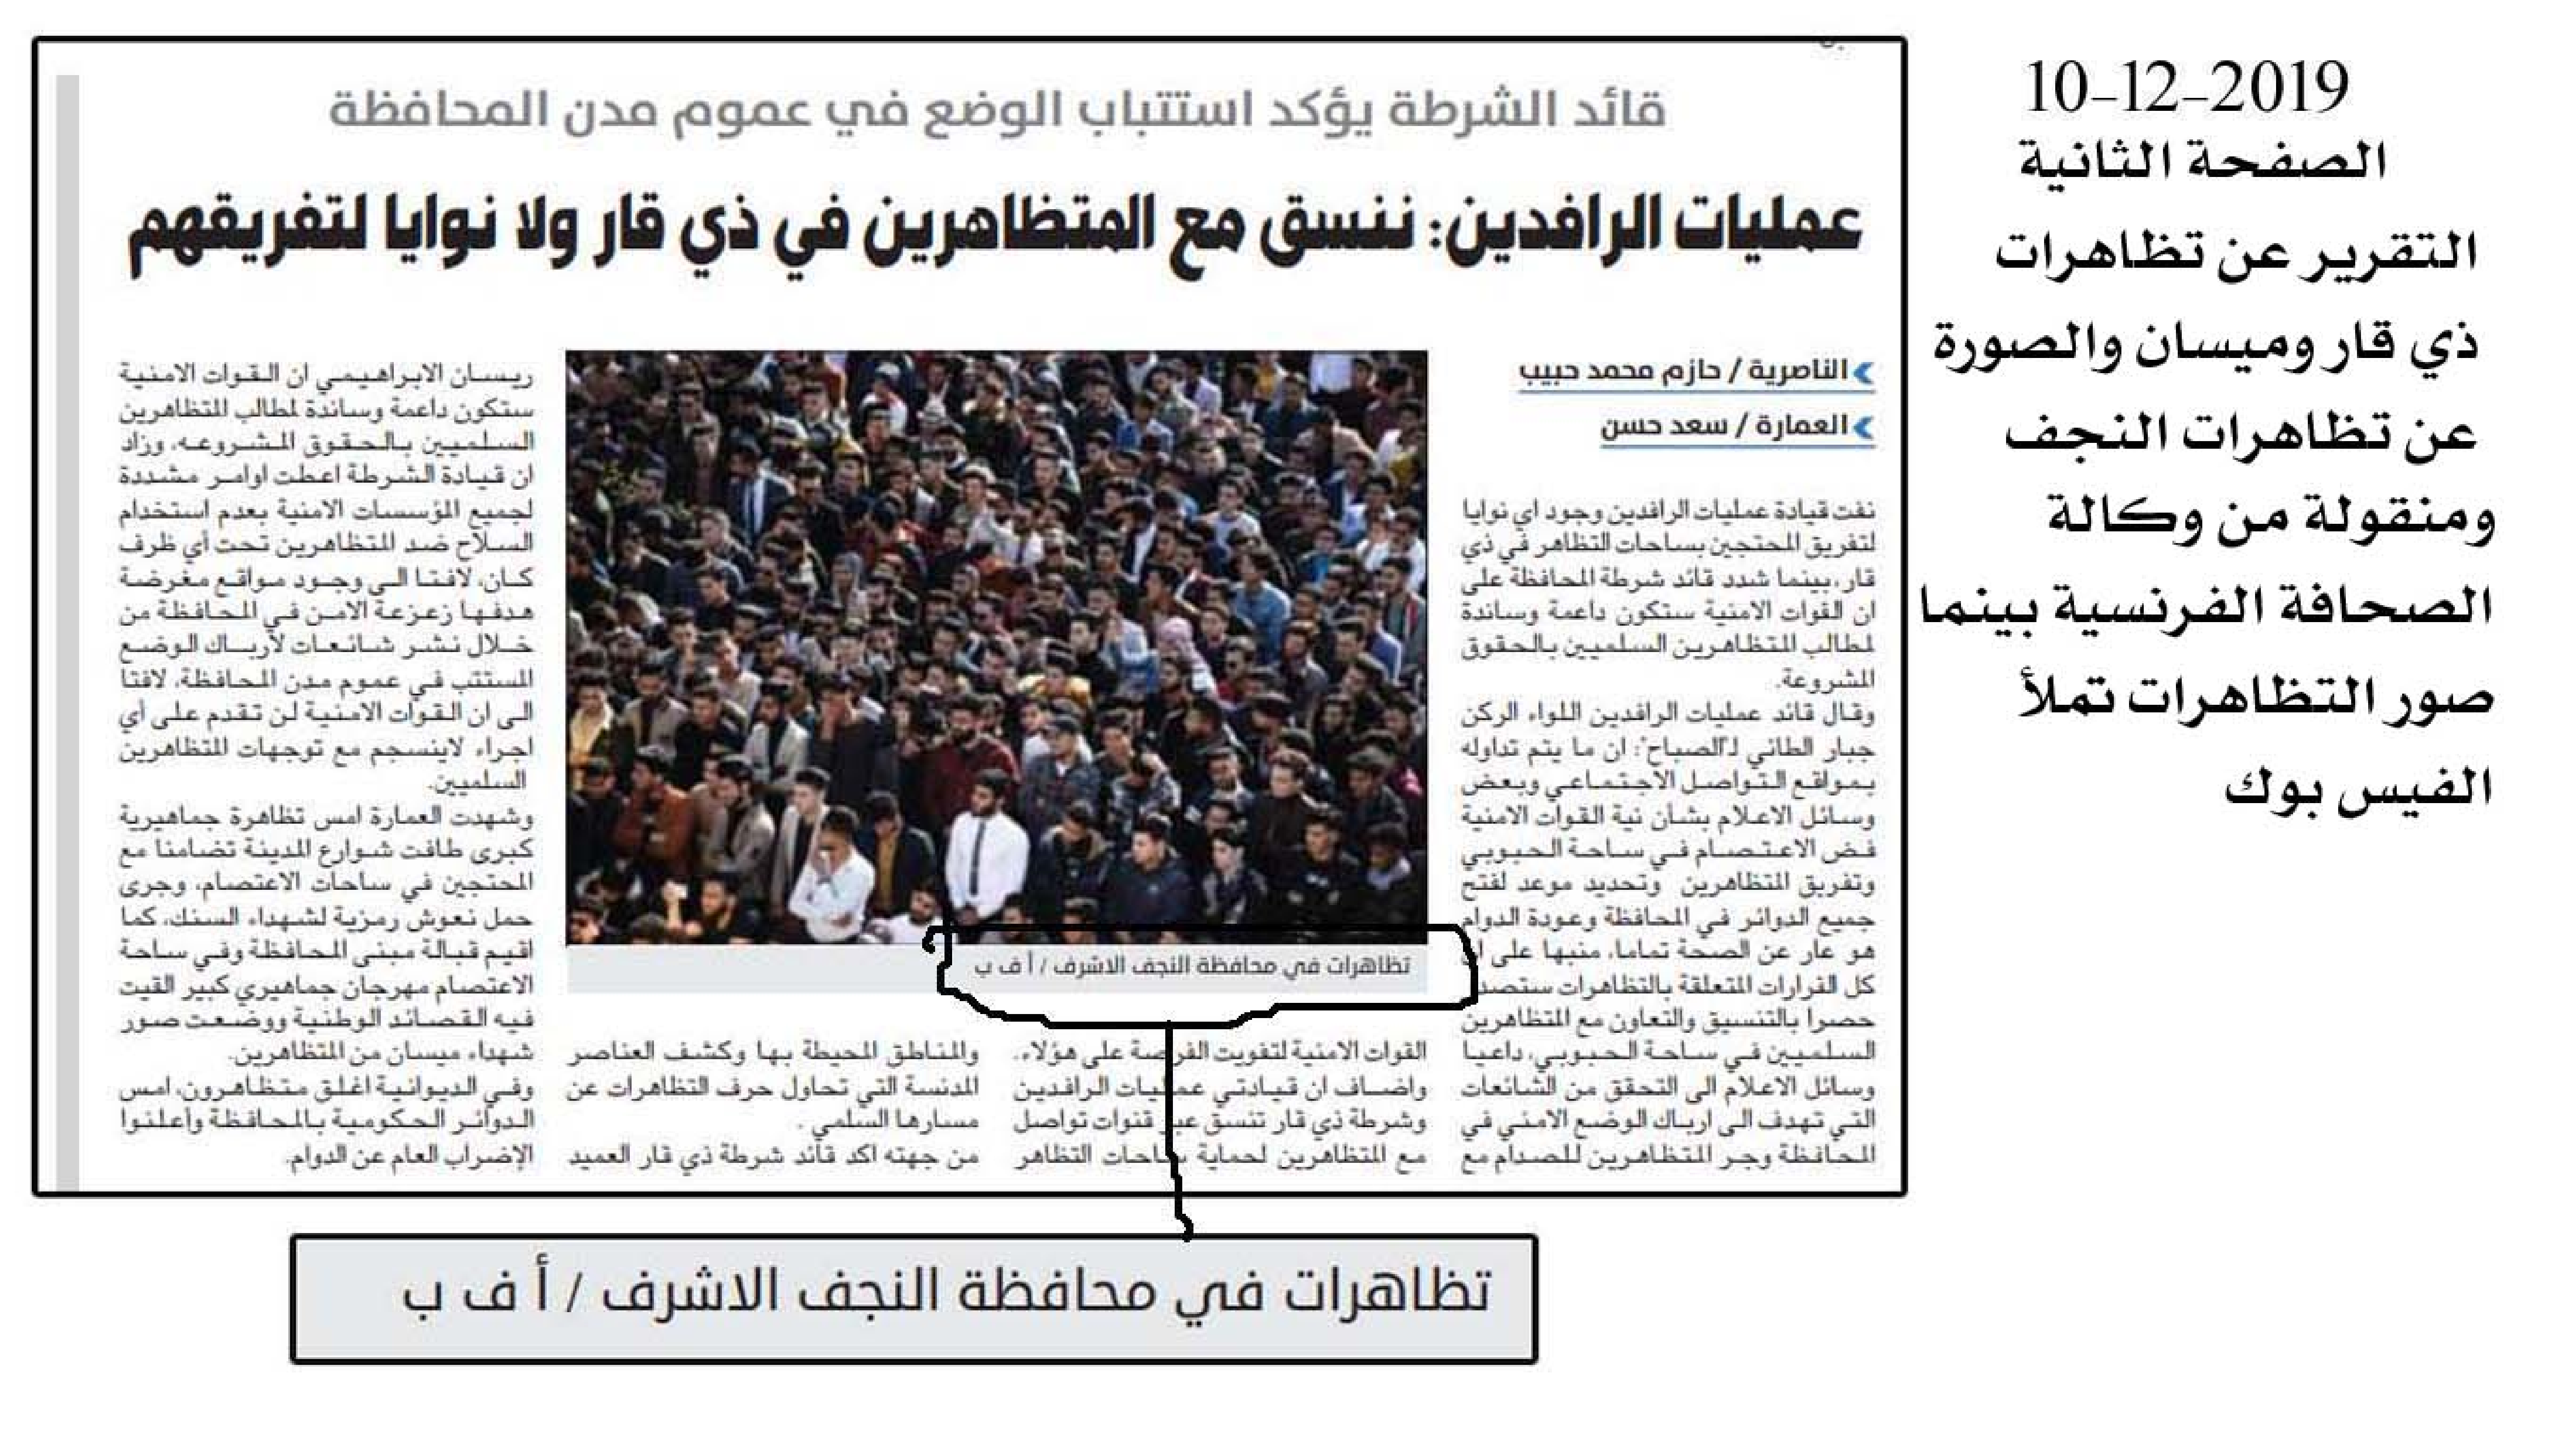 10-12-2019
الصفحة الثانية
التقرير عن تظاهرات
ذي قار وميسان والصورة
عن تظاهرات النجف
ومنقولة من وكالة
الصحافة الفرنسية بينما
صور التظاهرات تملأ
الفيس بوك
قائد الشرطة يؤكد استتباب الوضع في عموم مدن المحافظة
عمليات الرافدين: ننسق مع المتظاهرين في ذي قار ولا نوايا لتفريقهم
الناصرية / حازم محمد حبيب
العمارة / سعد حسن
نفت قيادة عمليات الرافدين وجود اي نوايا
لتفريق المحتجين بساحات التظاهر في ذي
قار، بينما شدد قائد شرطة المحافظة على
ان القوات الامنية ستكون داعمة وساندة
لمطالب المتظاهرين السلميين بالحقوق
المشروعة.
وقال قائد عمليات الرافدين اللواء الركن
جبار الطائي لـ"الصباح": ان ما يتم تداوله
بمواقع التواصل الاجتماعي وبعض
وسائل الاعلام بشأن نية القوات الامنية
فض الاعتصام في ساحة الحبوبي
وتفريق المتظاهرين وتحديد موعد لفتح
جميع الدوائر في المحافظة وعودة الدوام
هو عار عن الصحة تماما، منبها على ان
كل القرارات المتعلقة بالتظاهرات ستصدر
حصرا بالتنسيق والتعاون مع المتظاهرين
السلميين في ساحة الحبوبي، داعيا
وسائل الاعلام الى التحقق من الشائعات
التي تهدف الى ارباك الوضع الامني في
المحافظة وجر المتظاهرين للصدام مع
تظاهرات في محافظة النجف الاشرف / أ ف ب
القوات الامنية لتفويت الفرصة على هؤلاء.
واضاف ان قيادتي عمليات الرافدين
وشرطة ذي قار تنسق عبر قنوات تواصل
مع المتظاهرين لحماية ساحات التظاهر
والمناطق المحيطة بها وكشف العناصر
المدنسة التي تحاول حرف التظاهرات عن
مسارها السلمي .
من جهته اكد قائد شرطة ذي قار العميد
ريسان الابراهيمي ان القوات الامنية
ستكون داعمة وساندة لمطالب المتظاهرين
السلميين بالحقوق المشروعه، وزاد
ان قيادة الشرطة اعطت اوامر مشددة
لجميع المؤسسات الامنية بعدم استخدام
السلاح ضد المتظاهرين تحت أي ظرف
كان، لافتا الى وجود مواقع مغرضة
هدفها زعزعة الامن في المحافظة من
خلال نشر شائعات لارباك الوضع
المستتب في عموم مدن المحافظة، لافتا
الى ان القوات الامنية لن تقدم على أي
اجراء لاينسجم مع توجهات المتظاهرين
السلميين.
وشهدت العمارة امس تظاهرة جماهيرية
كبرى طافت شوارع المدينة تضامنا مع
المحتجين في ساحات الاعتصام، وجرى
حمل نعوش رمزية لشهداء السنك، كما
اقيم قبالة مبنى المحافظة وفي ساحة
الاعتصام مهرجان جماهيري كبير القيت
فيه القصائد الوطنية ووضعت صور
شهداء ميسان من المتظاهرين.
وفي الديوانية اغلق متظاهرون، امس
الدوائر الحكومية بالمحافظة وأعلنوا
الإضراب العام عن الدوام.
تظاهرات في محافظة النجف الاشرف / أ ف ب